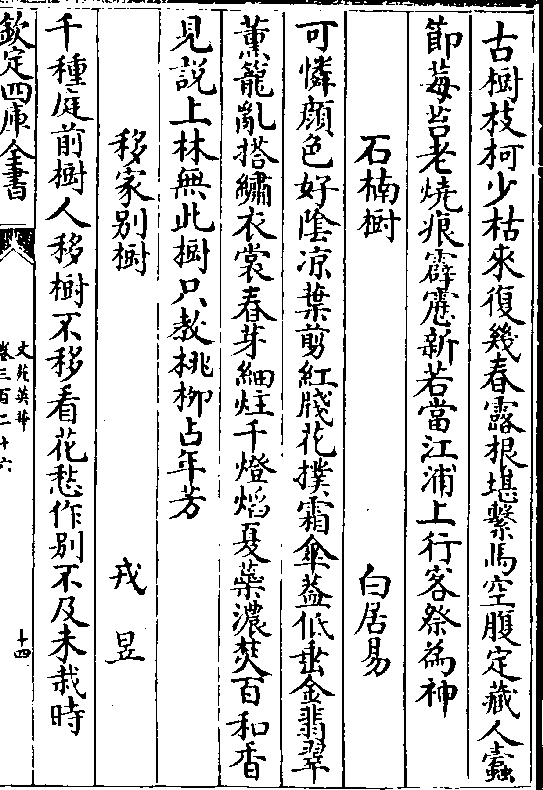 古樹枝柯少枯來復幾春露根堪繫馬空腹定藏人蠧
節莓苔老燒痕霹靂新若當江浦上行客祭為神
石楠樹 白居易
可憐顔色好隂凉葉剪紅牋花撲霜傘葢低垂金翡翠
薫籠亂搭繡衣裳春芽細炷千燈熖夏蘂濃焚百和香
見説上林無此樹只教桃柳占年芳
移家别樹 戎昱
千種庭前樹人移樹不移看花愁作别不及未栽時
欽定四庫全書
文苑英華
卷三百二十六
十四